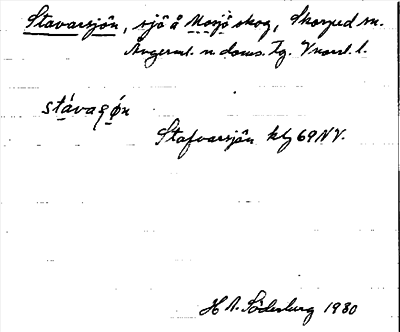 Stavarsjön, sjö å Mosjö skog, Skorped sn.
Ångerml. n doms. Tg. Vnorrl. l.
stávaʂǿn
Stafvarsjön ktbl 69 NV.
H. A. Söderburg 1930